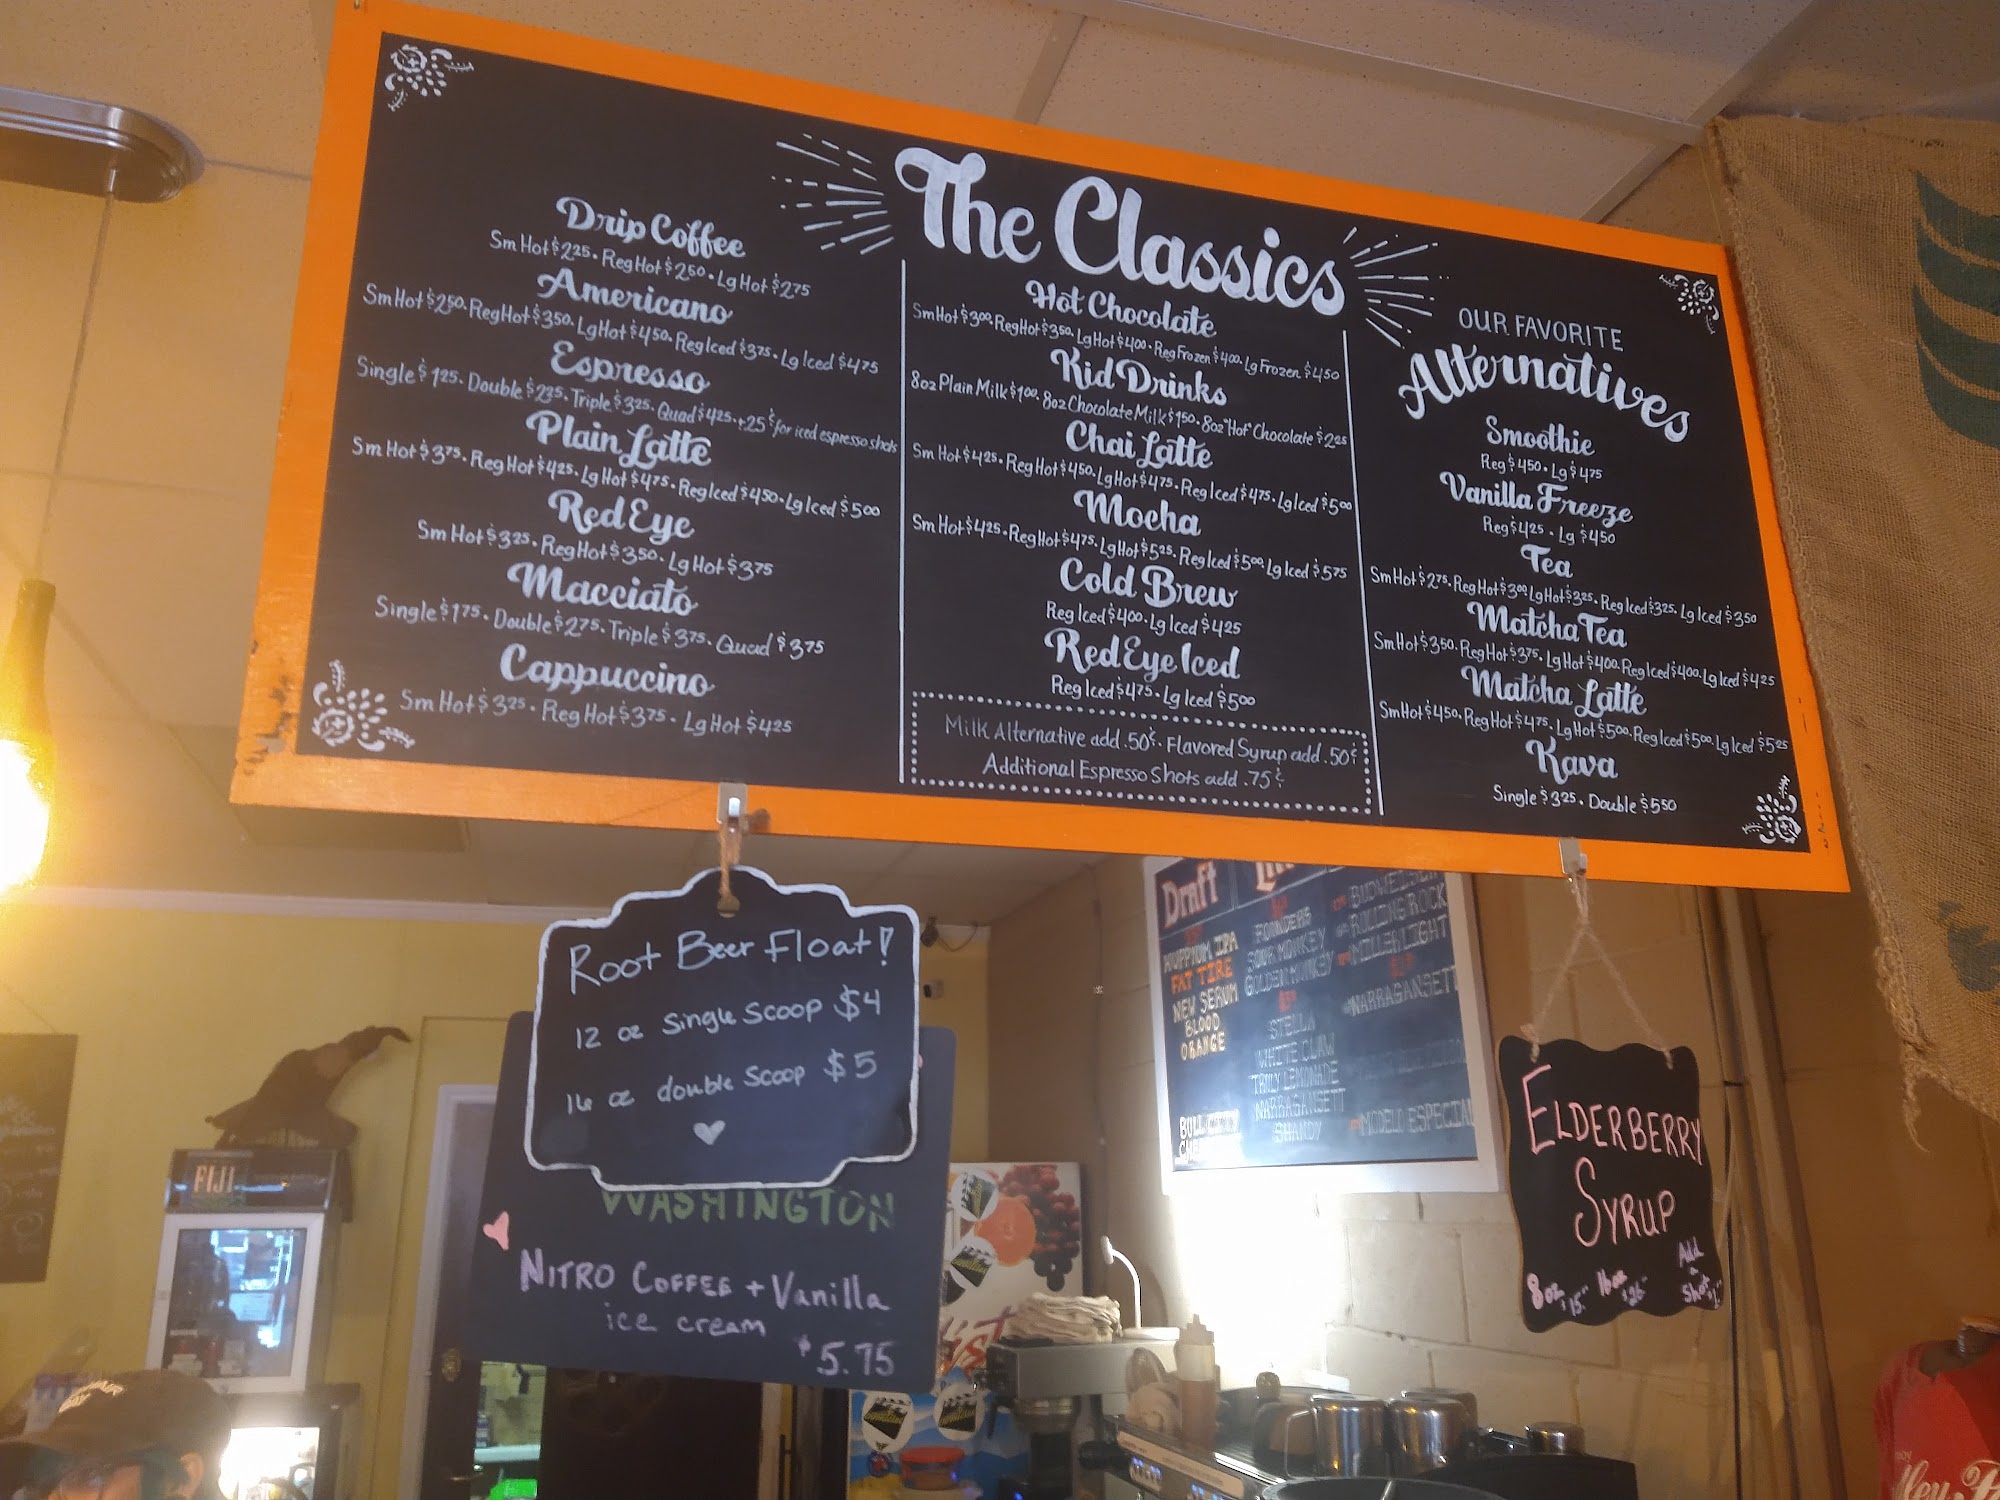 The Classics
Drip Coffee
Sm Hot $2.25 · Reg Hot $2.50 · Lg Hot $2.75
Americano
Sm Hot $2.50 · Reg Hot $3.50 · Lg Hot $4.50 · Reg Iced $3.75 · Lg Iced $4.75
Espresso
Single $1.25 · Double $2.25 · Triple $3.25 · Quad $4.25 · +.25¢ for iced espresso shots
Plain Latte
Sm Hot $3.75 · Reg Hot $4.25 · Lg Hot $4.75 · Reg Iced $4.50 · Lg Iced $5.00
Red Eye
Sm Hot $3.25 · Reg Hot $3.50 · Lg Hot $3.75
Macciato
Single $1.75 · Double $2.75 · Triple $3.75 · Quad $3.75
Cappuccino
Sm Hot $3.25 · Reg Hot $3.75 · Lg Hot $4.25
Hot Chocolate
Sm Hot $3.00 · Reg Hot $3.50 · Lg Hot $4.00 · Reg Frozen $4.00 · Lg Frozen $4.50
Kid Drinks
8oz Plain Milk $1.00 · 8oz Chocolate Milk $1.50 · 8oz "Hot" Chocolate $2.25
Chai Latte
Sm Hot $4.25 · Reg Hot $4.50 · Lg Hot $4.75 · Reg Iced $4.75 · Lg Iced $5.00
Mocha
Sm Hot $4.25 · Reg Hot $4.75 · Lg Hot $5.25 · Reg Iced $5.00 · Lg Iced $5.75
Cold Brew
Reg Iced $4.00 · Lg Iced $4.25
Red Eye Iced
Reg Iced $4.75 · Lg Iced $5.00
Milk Alternative add .50¢ · Flavored Syrup add .50¢
Additional Espresso Shots add .75¢
OUR FAVORITE
Alternatives
Smoothie
Reg $4.50 · Lg $4.75
Vanilla Freeze
Reg $4.25 · Lg $4.50
Tea
Sm Hot $2.75 · Reg Hot $3.00 Lg Hot $3.25 · Reg Iced $3.25 · Lg Iced $3.50
Matcha Tea
Sm Hot $3.50 · Reg Hot $3.75 · Lg Hot $4.00 · Reg Iced $4.00 · Lg Iced $4.25
Matcha Latte
Sm Hot $4.50 · Reg Hot $4.75 · Lg Hot $5.00 · Reg Iced $5.00 · Lg Iced $5.25
Kava
Single $3.25 · Double $5.50
Root Beer Float!
12 oz single scoop $4
16 oz double scoop $5
WASHINGTON
NITRO COFFEE + Vanilla
ice cream
$5.75
FIJI
Draft
IPA
FAT TIRE
NEW SERUM
BLOOD
ORANGE
BULL CITY
FOUNDERS
SOUR MONKEY
GOLDEN MONKEY
STELLA
WHITE CLAW
TRULY LEMONADE
NARRAGANSETT
SHANDY
ROLLING ROCK
MILLER LIGHT
NARRAGANSETT
MODELO ESPECIAL
ELDERBERRY
SYRUP
8oz $15
16oz $26
Add
a
shot